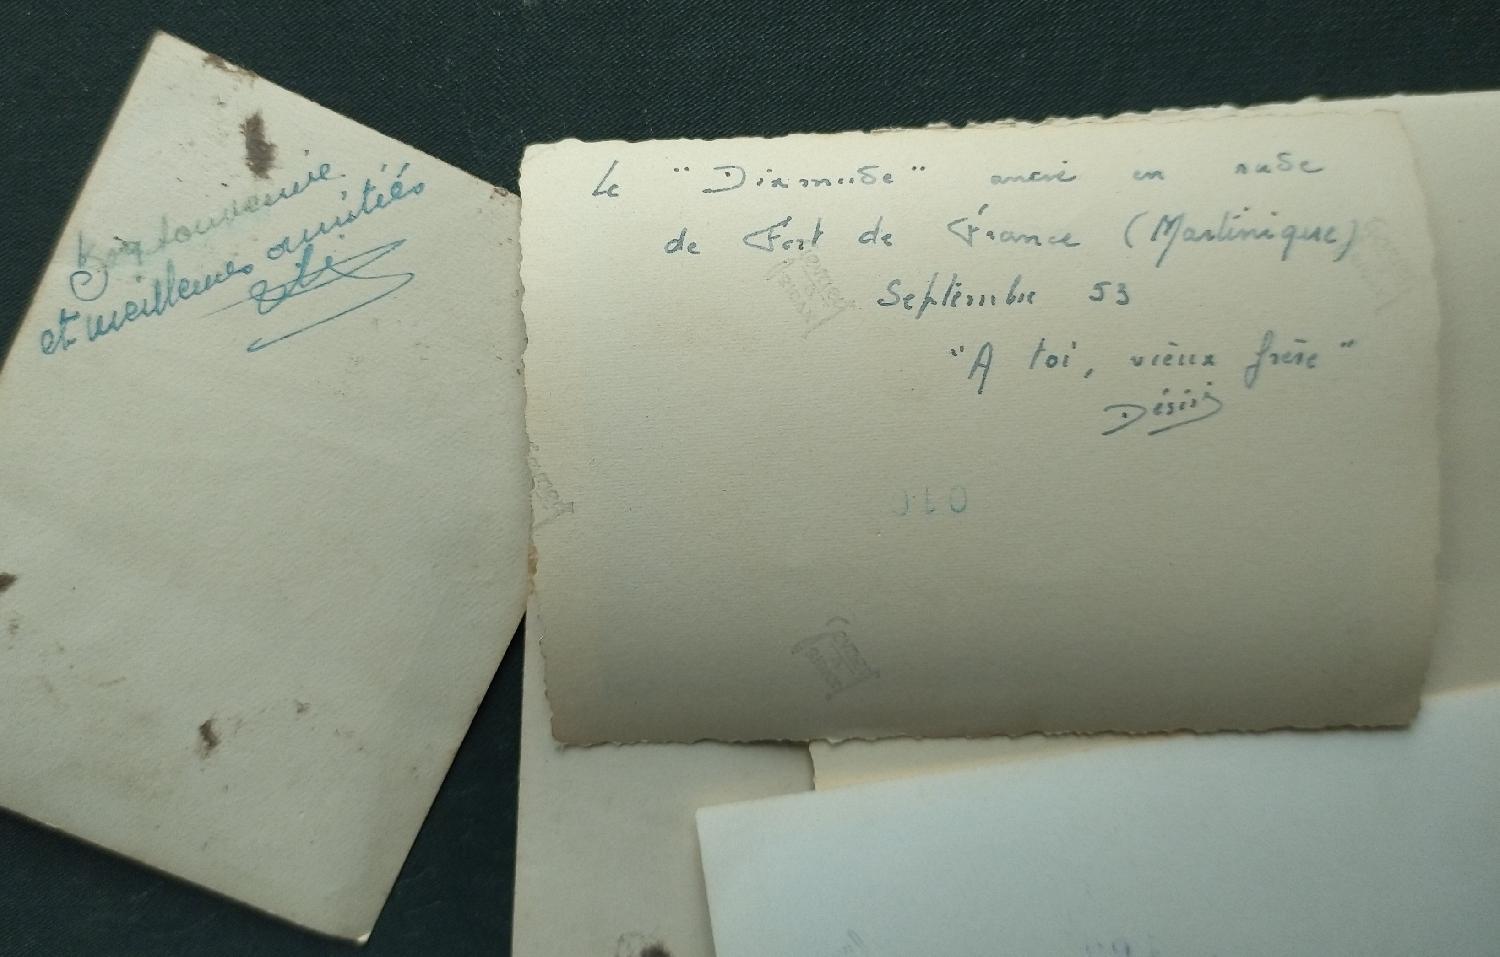 Bon souvenir
et meilleures amitiés
Le "Dixmude" ancré en rade
de Fort de France (Martinique)
Septembre 53
"A toi, vieux frère"
Désiré